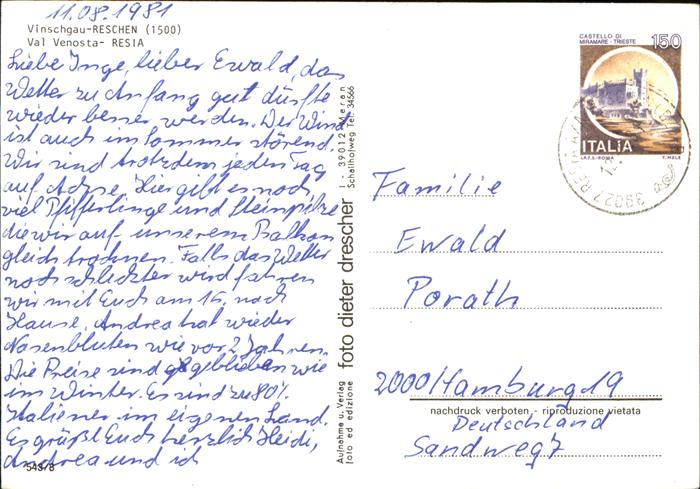 11.08.1981
Vinschgau-RESCHEN (1500)
Val Venosta- RESIA
Liebe Inge, lieber Ewald, das
Wetter zu Anfang gut dürfte
wieder besser werden. Der Wind
ist auch im Sommer störend.
Wir sind trotzdem jeden Tag
auf Achse. Hier gibt es noch
viel Pfifferlinge und Steinpilze
die wir auf unserem Balkon
gleich trocknen. Falls das Wetter
noch schlechter wird fahren
wir mit Euch am 15. nach
Hause. Andrea hat wieder
Nasenbluten wie vor 2 Jahren.
Die Preise sind geblieben wie
im Winter. Es sind zu 80%
Italiener im eigenen Land.
Es grüßt Euch herzlich Heidi,
Andrea und ich
54378
Aufnahme u. Verlag
foto ed edizione
foto dieter drescher
I - 39012 Meran
Schallhofweg Tel. 34566
CASTELLO DI
MIRAMARE - TRIESTE
150
ITALIA
I.P.Z.S.-ROMA
T. MELE
39027 RES
Familie
Ewald
Porath
2000 Hamburg 19
nachdruck verboten - riproduzione vietata
Deutschland
Sandweg 7